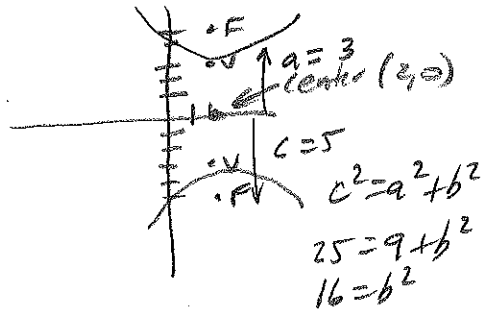 F
V
a = 3
center (2,0)
c = 5
V
F
c² = a² + b²
25 = 9 + b²
16 = b²